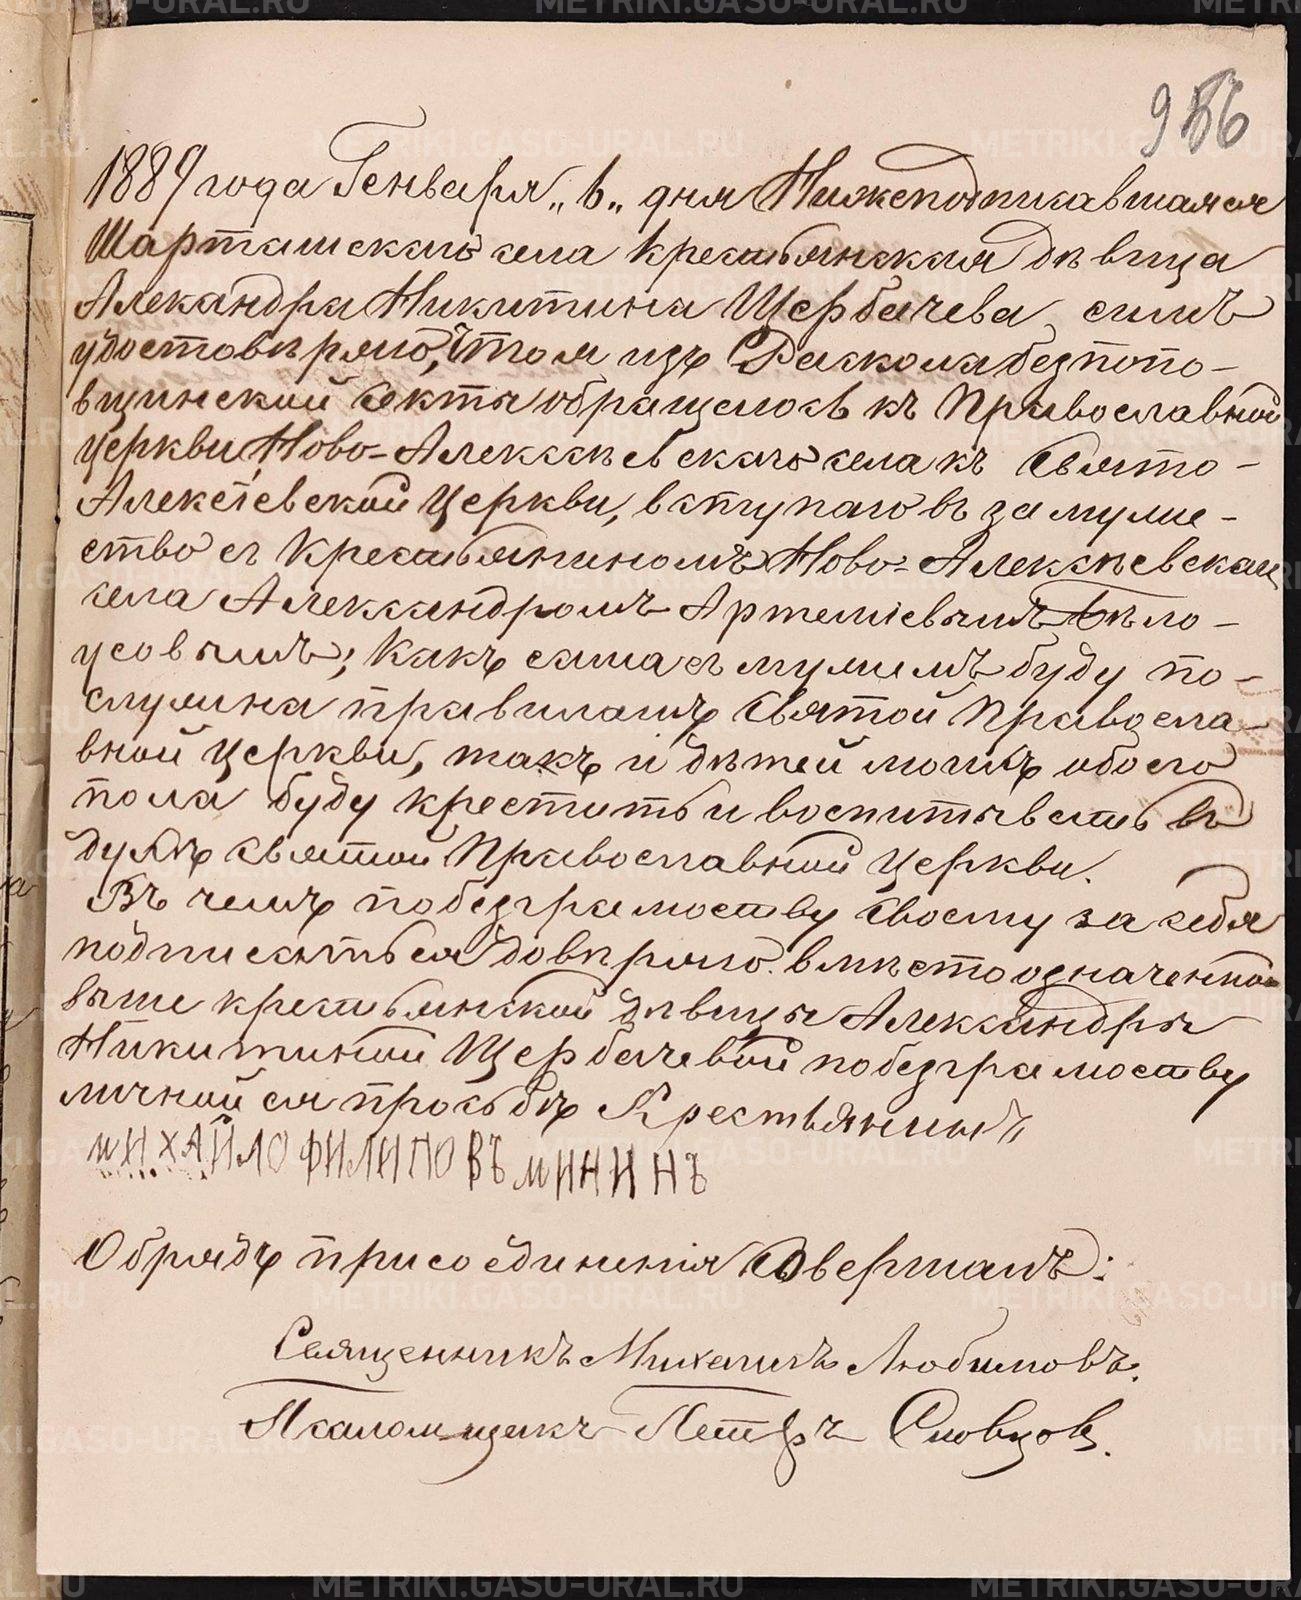 956
1889 года Генваря „6„ дня Нижеподписавшаяся
Шарташскаго села крестьянская дѣвица
Александра Никитина Щербачева симъ
удостовѣряю, что я изъ Раскола безпопо-
вщинской секты обращаюсь къ Православной
церкви, Ново-Алексѣевскаго села къ Свято-
Алексіевской Церкви, вступаю въ замуже-
ство съ крестьяниномъ Ново-Алексѣевскаго
села Александромъ Артеміевымъ Бѣло-
усовымъ; какъ сама съ мужемъ буду по-
служна правиламъ Святой Правосла-
вной Церкви, такъ и дѣтей моихъ обоего
пола буду крестить и воспитывать въ
духѣ святой Православной Церкви.
Въ чемъ по безграмоству своему за себя
подписаться довѣряю. вмѣсто означенной
выше крестьянской дѣвицы Александры
Никитиной Щербачевой по безграмоству
личной ея просьбѣ Крестьянинъ
МИХАЙЛО ФИЛИПОВЪ МИНИНЪ
Обрядъ присоединенія совершалъ:
Священникъ Михаилъ Любимовъ.
Псаломщикъ Петръ Словцовъ.
METRIKI.GASO-URAL.RU